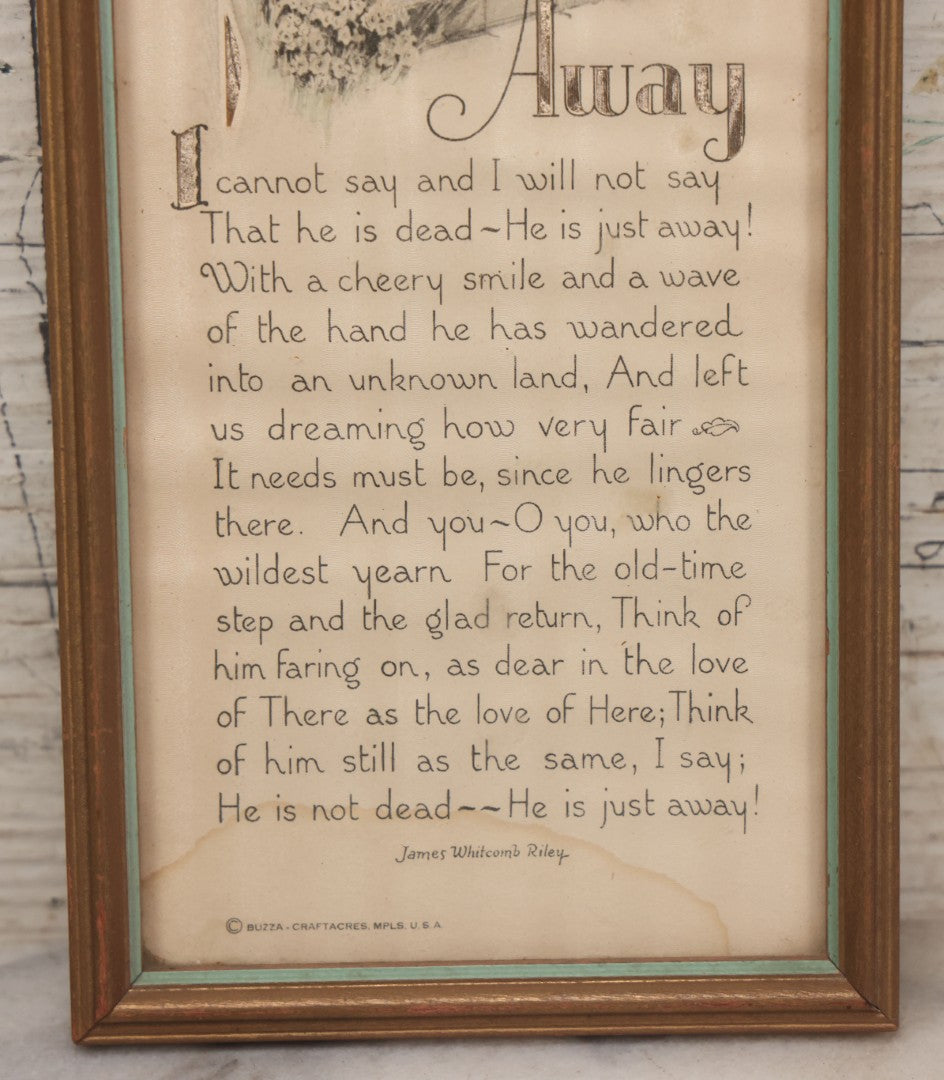 Away
I cannot say and I will not say
That he is dead~He is just away!
With a cheery smile and a wave
of the hand he has wandered
into an unknown land, And left
us dreaming how very fair
It needs must be, since he lingers
there. And you~O you, who the
wildest yearn For the old-time
step and the glad return, Think of
him faring on, as dear in the love
of There as the love of Here; Think
of him still as the same, I say;
He is not dead~~He is just away!
James Whitcomb Riley
© BUZZA-CRAFTACRES, MPLS. U.S.A.